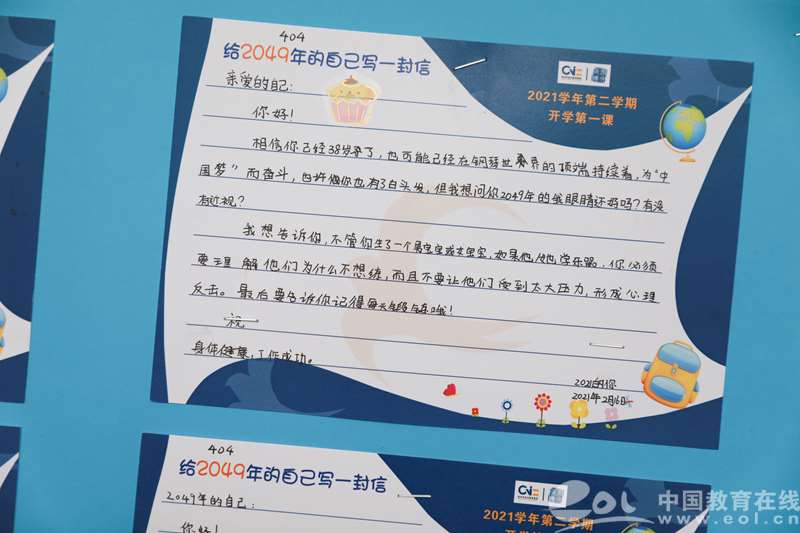 404
给2049年的自己写一封信
CNE
2021学年第二学期
开学第一课
亲爱的自己:
你好!
相信你已经38岁了,也可能已经在钢琴世界的顶端持续着,为“中
国梦”而奋斗,也许你也有了白头发,但我想问你2049年的我眼睛还好吗?有没
有近视?
我想告诉你,不管你生了一个男宝宝或女宝宝,如果他/她学乐器,你必须
要理解他们为什么不想练,而且不要让他们受到太大压力,形成心理
反击。最后要告诉你记得每天哦!
祝
身体健康,工作成功。
2021的你
2021年2月16日
404
给2049年的自己写一封信
CNE
2021学年第二学期
2049年的自己:
你好!
eol 中国教育在线
www.eol.cn